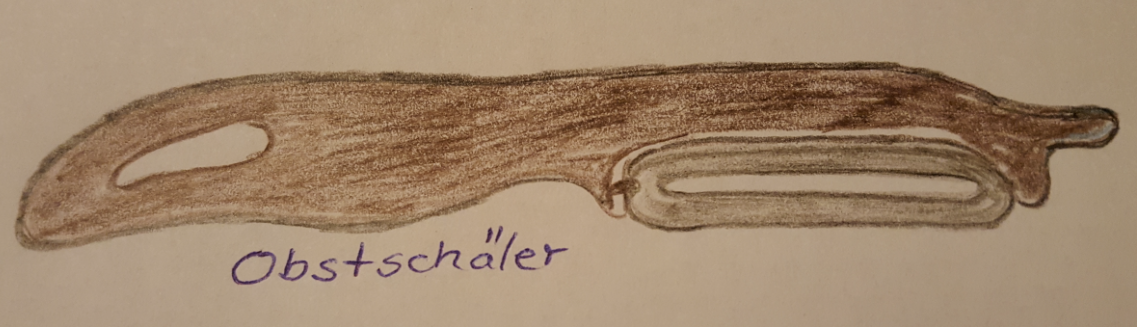 Obstschäler